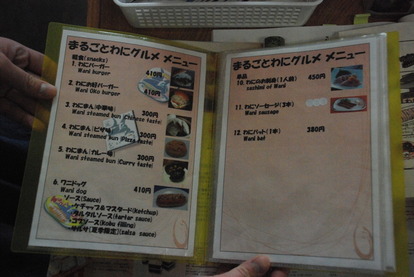 まるごとわにグルメ メニュー
軽食(snacks)
1. わにバーガー 410円
Wani burger
2. わにお好バーガー 410円
Wani Oko burger
3. わにまん(中華味) 300円
Wani steamed bun (Chinese taste)
4. わにまん(ピザ味) 300円
Wani steamed bun (Pizza taste)
5. わにまん(カレー味) 300円
Wani steamed bun (Curry taste)
6. ワニドッグ 410円
Wani dog
ソース(Sauce)
・ケチャップ&マスタード(ketchup)
・タルタルソース(tartar sauce)
(Koku filling)
・サルサ(夏季限定)(salsa sauce)
まるごとわにグルメ メニュー
単品
10. わにのお刺身(1人前) 450円
sashimi of Wani
11. わにソーセージ(2本)
Wani sausage
12. わにバット(1本) 380円
Wani bat